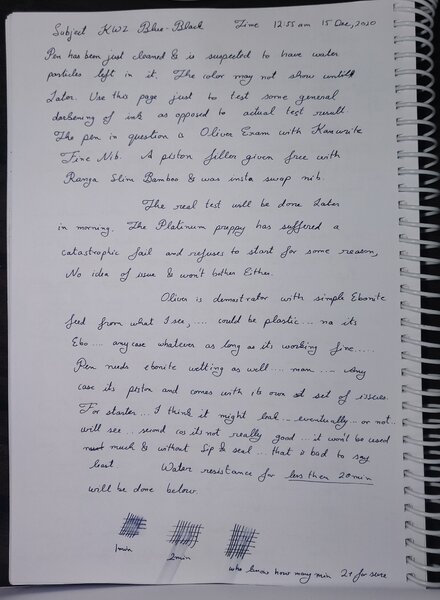 Subject KWZ Blue-Black Time 12:55 am 15 Dec, 2020
Pen has been just cleaned & is suspected to have water
particles left in it. The color may not show until
Later. Use this page just to test some general
darkening of ink as opposed to actual test result.
The pen in question is Oliver Exam with Kanwrite
Fine Nib. A piston filler given free with
Ranga Slim Bamboo & was insta swap nib.
The real test will be done Later
in morning. The Platinum preppy has suffered a
catastrophic fail and refuses to start for some reason,
No idea of issue & won't bother Either.
Oliver is demostrator with simple Ebonite
feed from what I see, .... could be plastic... na its
Ebo.... anycase whatever as long as its working fine.....
Pen needs ebonite wetting as well.... man.... Any
case its piston and comes with its own set of issues.
For starter... I think it might leak... eventually.. or not..
will see... second cos its not really good... it won't be used
much & without Sip & seal... that is bad to say
least Water resistance for less then 20min
will be done below.
1min
2min
who know how many min 2+ for sure